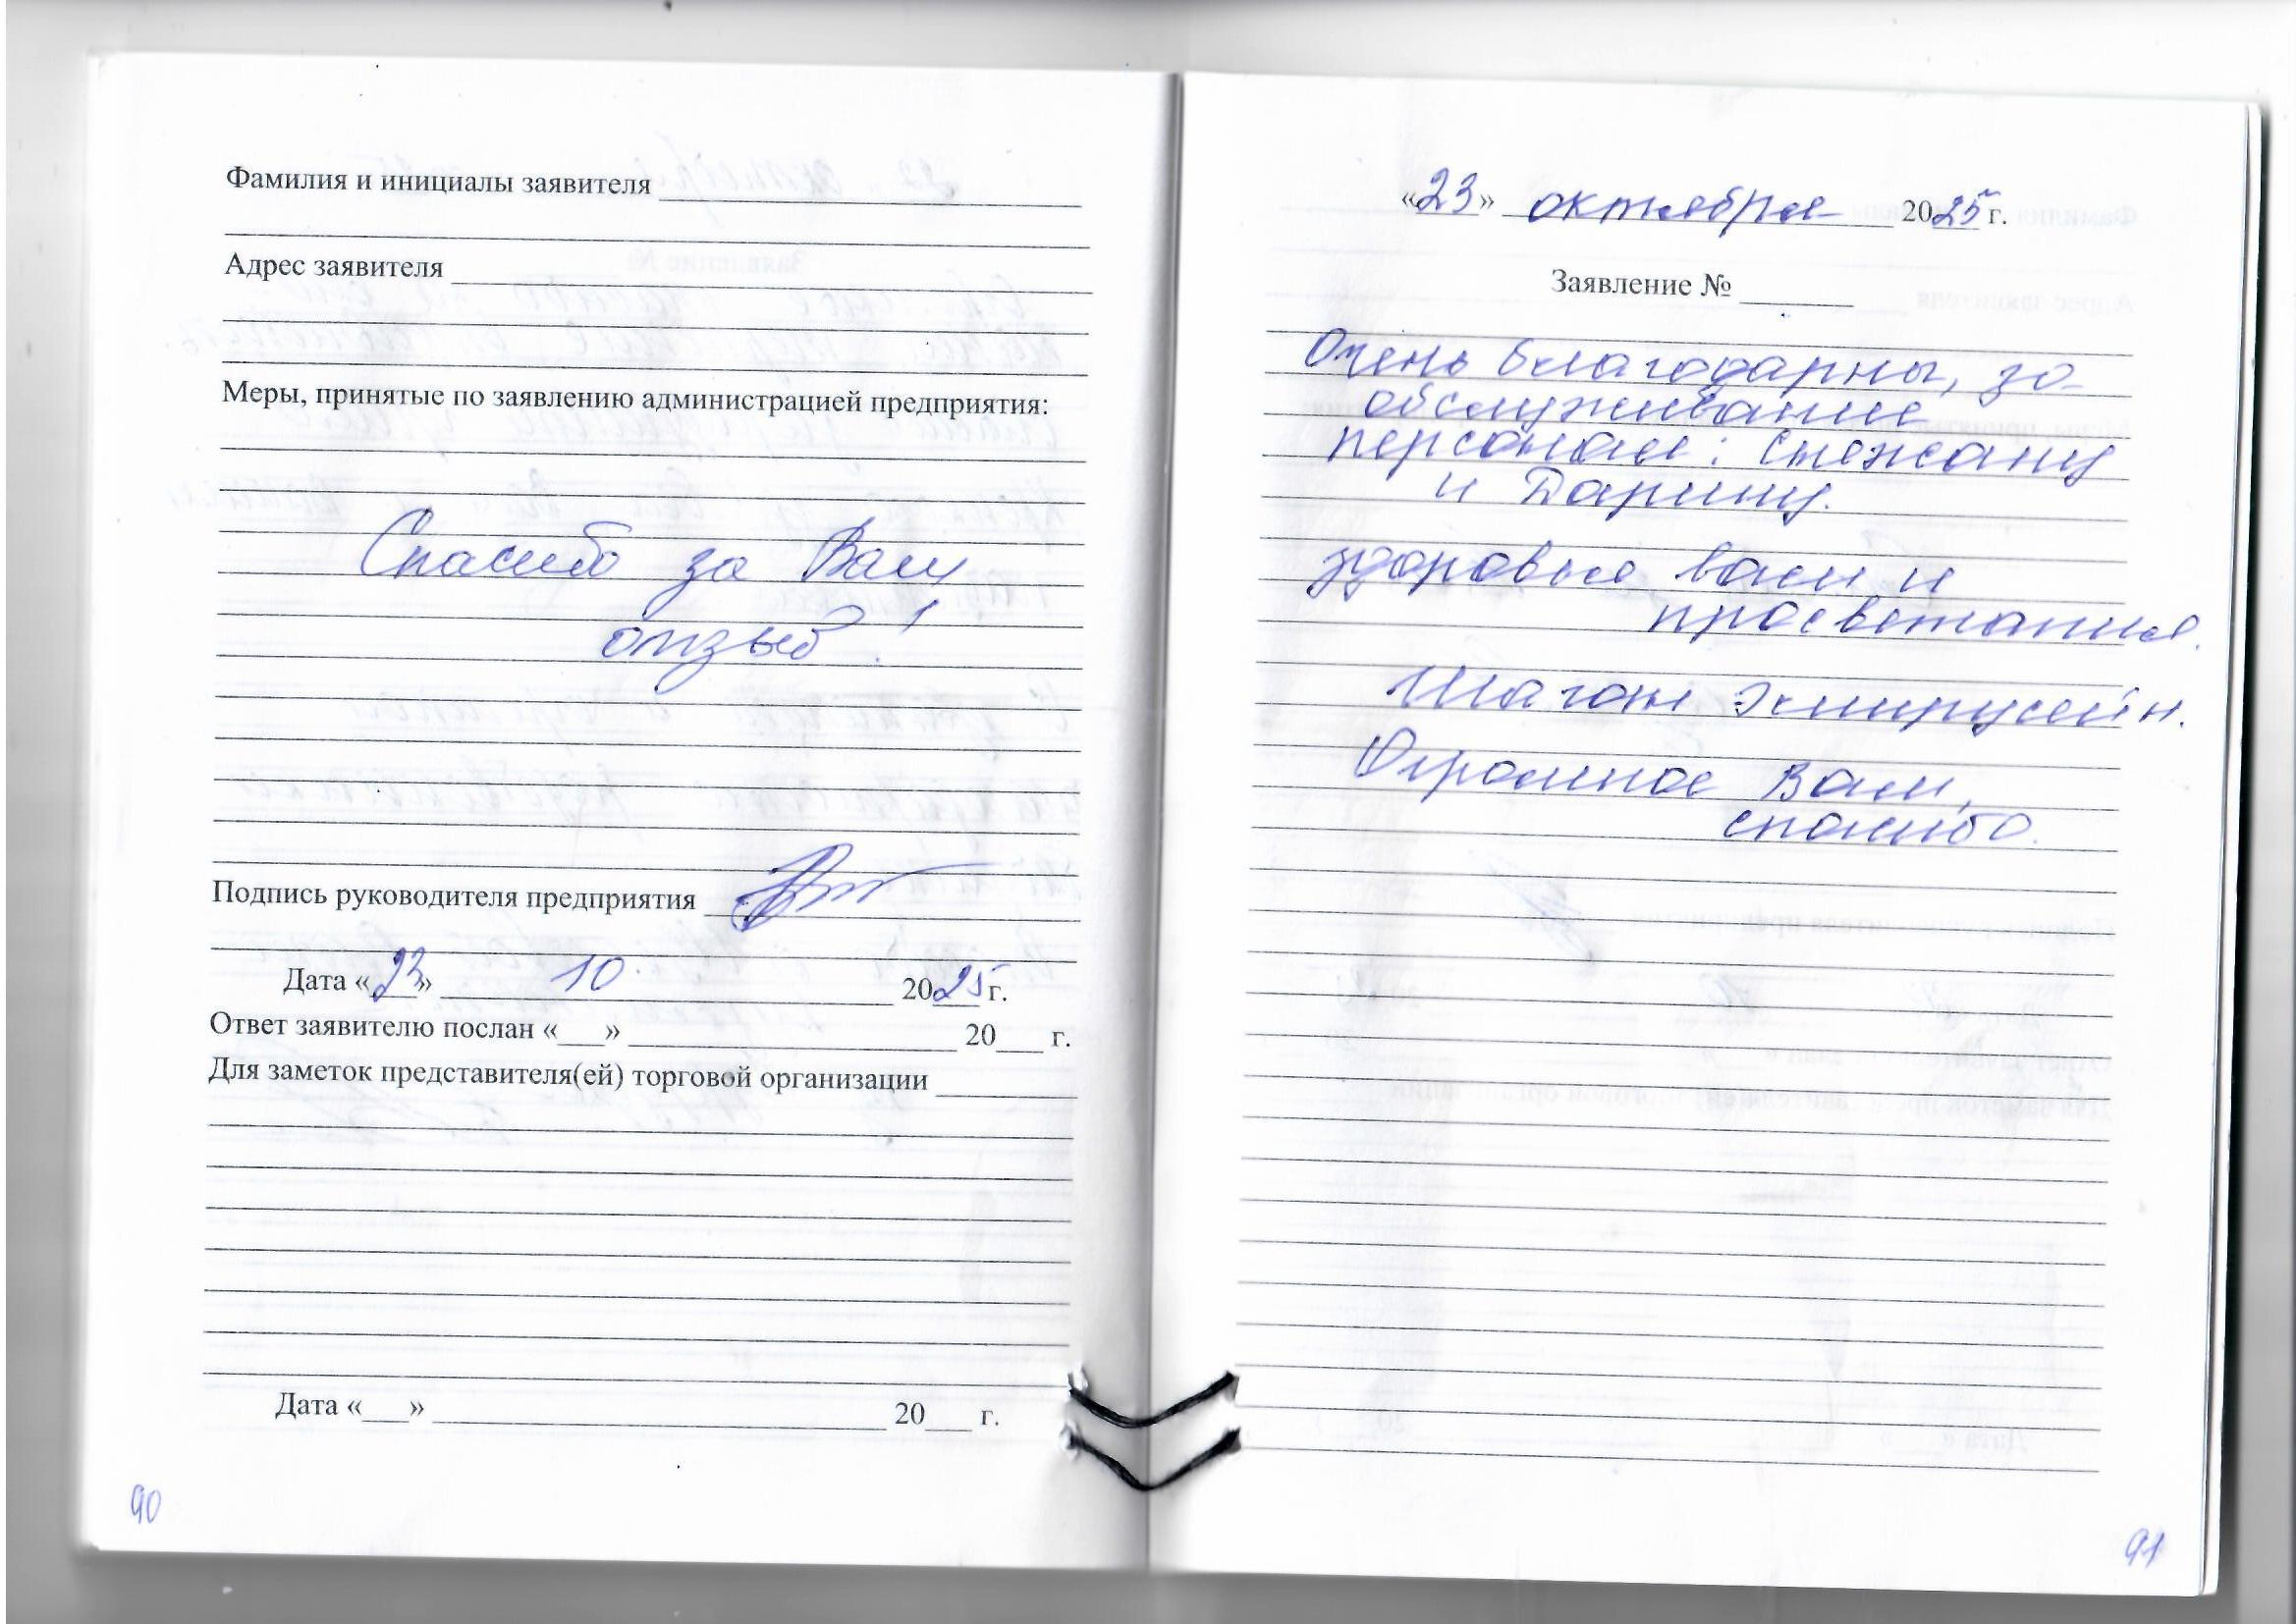 Фамилия и инициалы заявителя
Адрес заявителя
Меры, принятые по заявлению администрацией предприятия:
Спасибо за Ваш
отзыв!
Подпись руководителя предприятия
Дата «23» 10. 2025 г.
Ответ заявителю послан «___» 20___ г.
Для заметок представителя(ей) торговой организации
Дата «___» 20___ г.
90
«23» октября 2025 г.
Заявление №
Очень благодарны, за
обслуживание
персонал: Снежану
и Дарину.
здоровья вам и
просветания.
Огромное Вам,
спасибо.
91